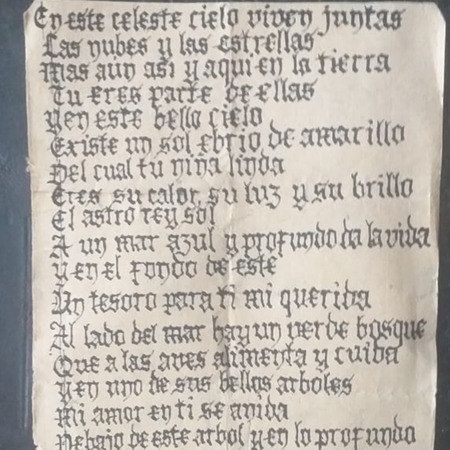 En este celeste cielo viven juntas
Las nubes y las estrellas
Mas aún asi y aqui en la tierra
Tu eres parte de ellas
Y en este bello cielo
Existe un sol ebrio de amarillo
Del cual tu niña linda
Eres su calor, su luz y su brillo
El astro rey sol
A un mar azul y profundo da la vida
Y en el fondo de este
Un tesoro para ti mi querida
Al lado del mar hay un verde bosque
Que a las aves alimenta y cuida
Y en uno de sus bellos arboles
Mi amor en ti se anida
Debajo de este arbol y en lo profundo